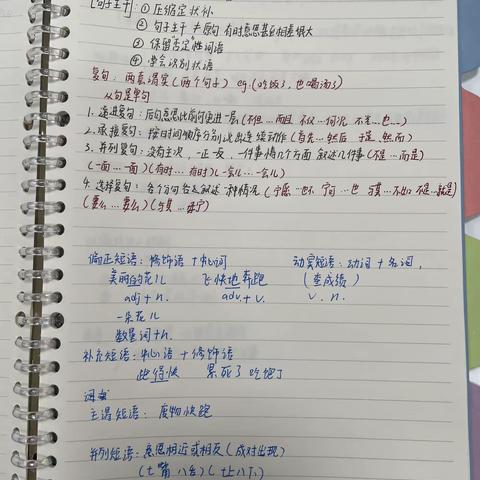 [句子主干]: ① 压缩定状补
② 句子主干 ≠ 原句 有时意思甚至相差很大
③ 保留"否定"性词语
④ 学会识别状语
复句: 两套谓宾(两个句子) eg:(吃饭了,也喝汤了)
从句是单句
1. 递进复句: 后句意思比前句更进一层(不但…而且 不仅…何况 不光…也…)
2. 承接复句: 按日时间顺序分别说出连续动作(首先…然后 于是,然而)
3. 并列复句: 没有主次,一正一反,一件事情几个方面 叙述几件事(不是…而是)
(一面…一面)(有时…有时)(一会儿…一会儿)
4. 选择复句: 各个分句各叙述一种情况(宁愿…也不 宁可…也 与其…不如 不是…就是)
(要么…要么)(与其…毋宁)
偏正短语: 修饰语 + 中心词 动宾短语: 动词 + 名词,
美丽的花儿 飞快地奔跑 (查成绩)
adj + n. adv. + v. v. n.
一朵花儿
数量词+n.
补充短语: 中心语 + 修饰语
跑得快 累死了 吃饱了
主谓短语: 废物快跑
并列短语: 意思相近或相反(成对出现)
(七嘴八舌)(七上八下)